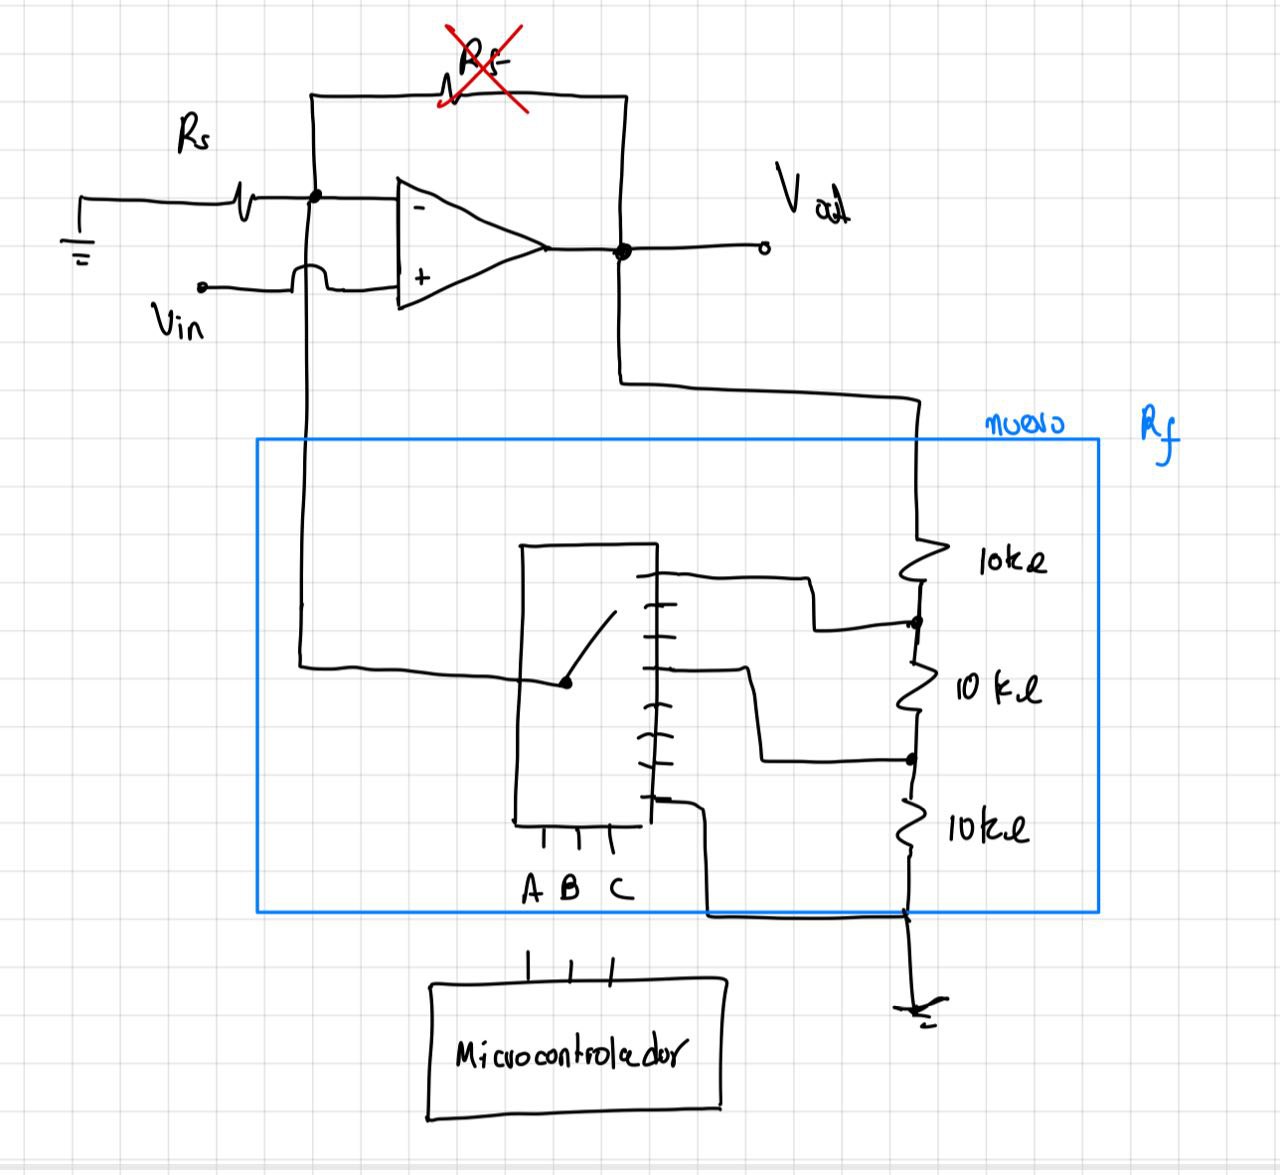 Rf
Rs
-
+
Vin
Vout
nuevo Rf
10kΩ
10kΩ
10kΩ
A B C
Microcontrolador